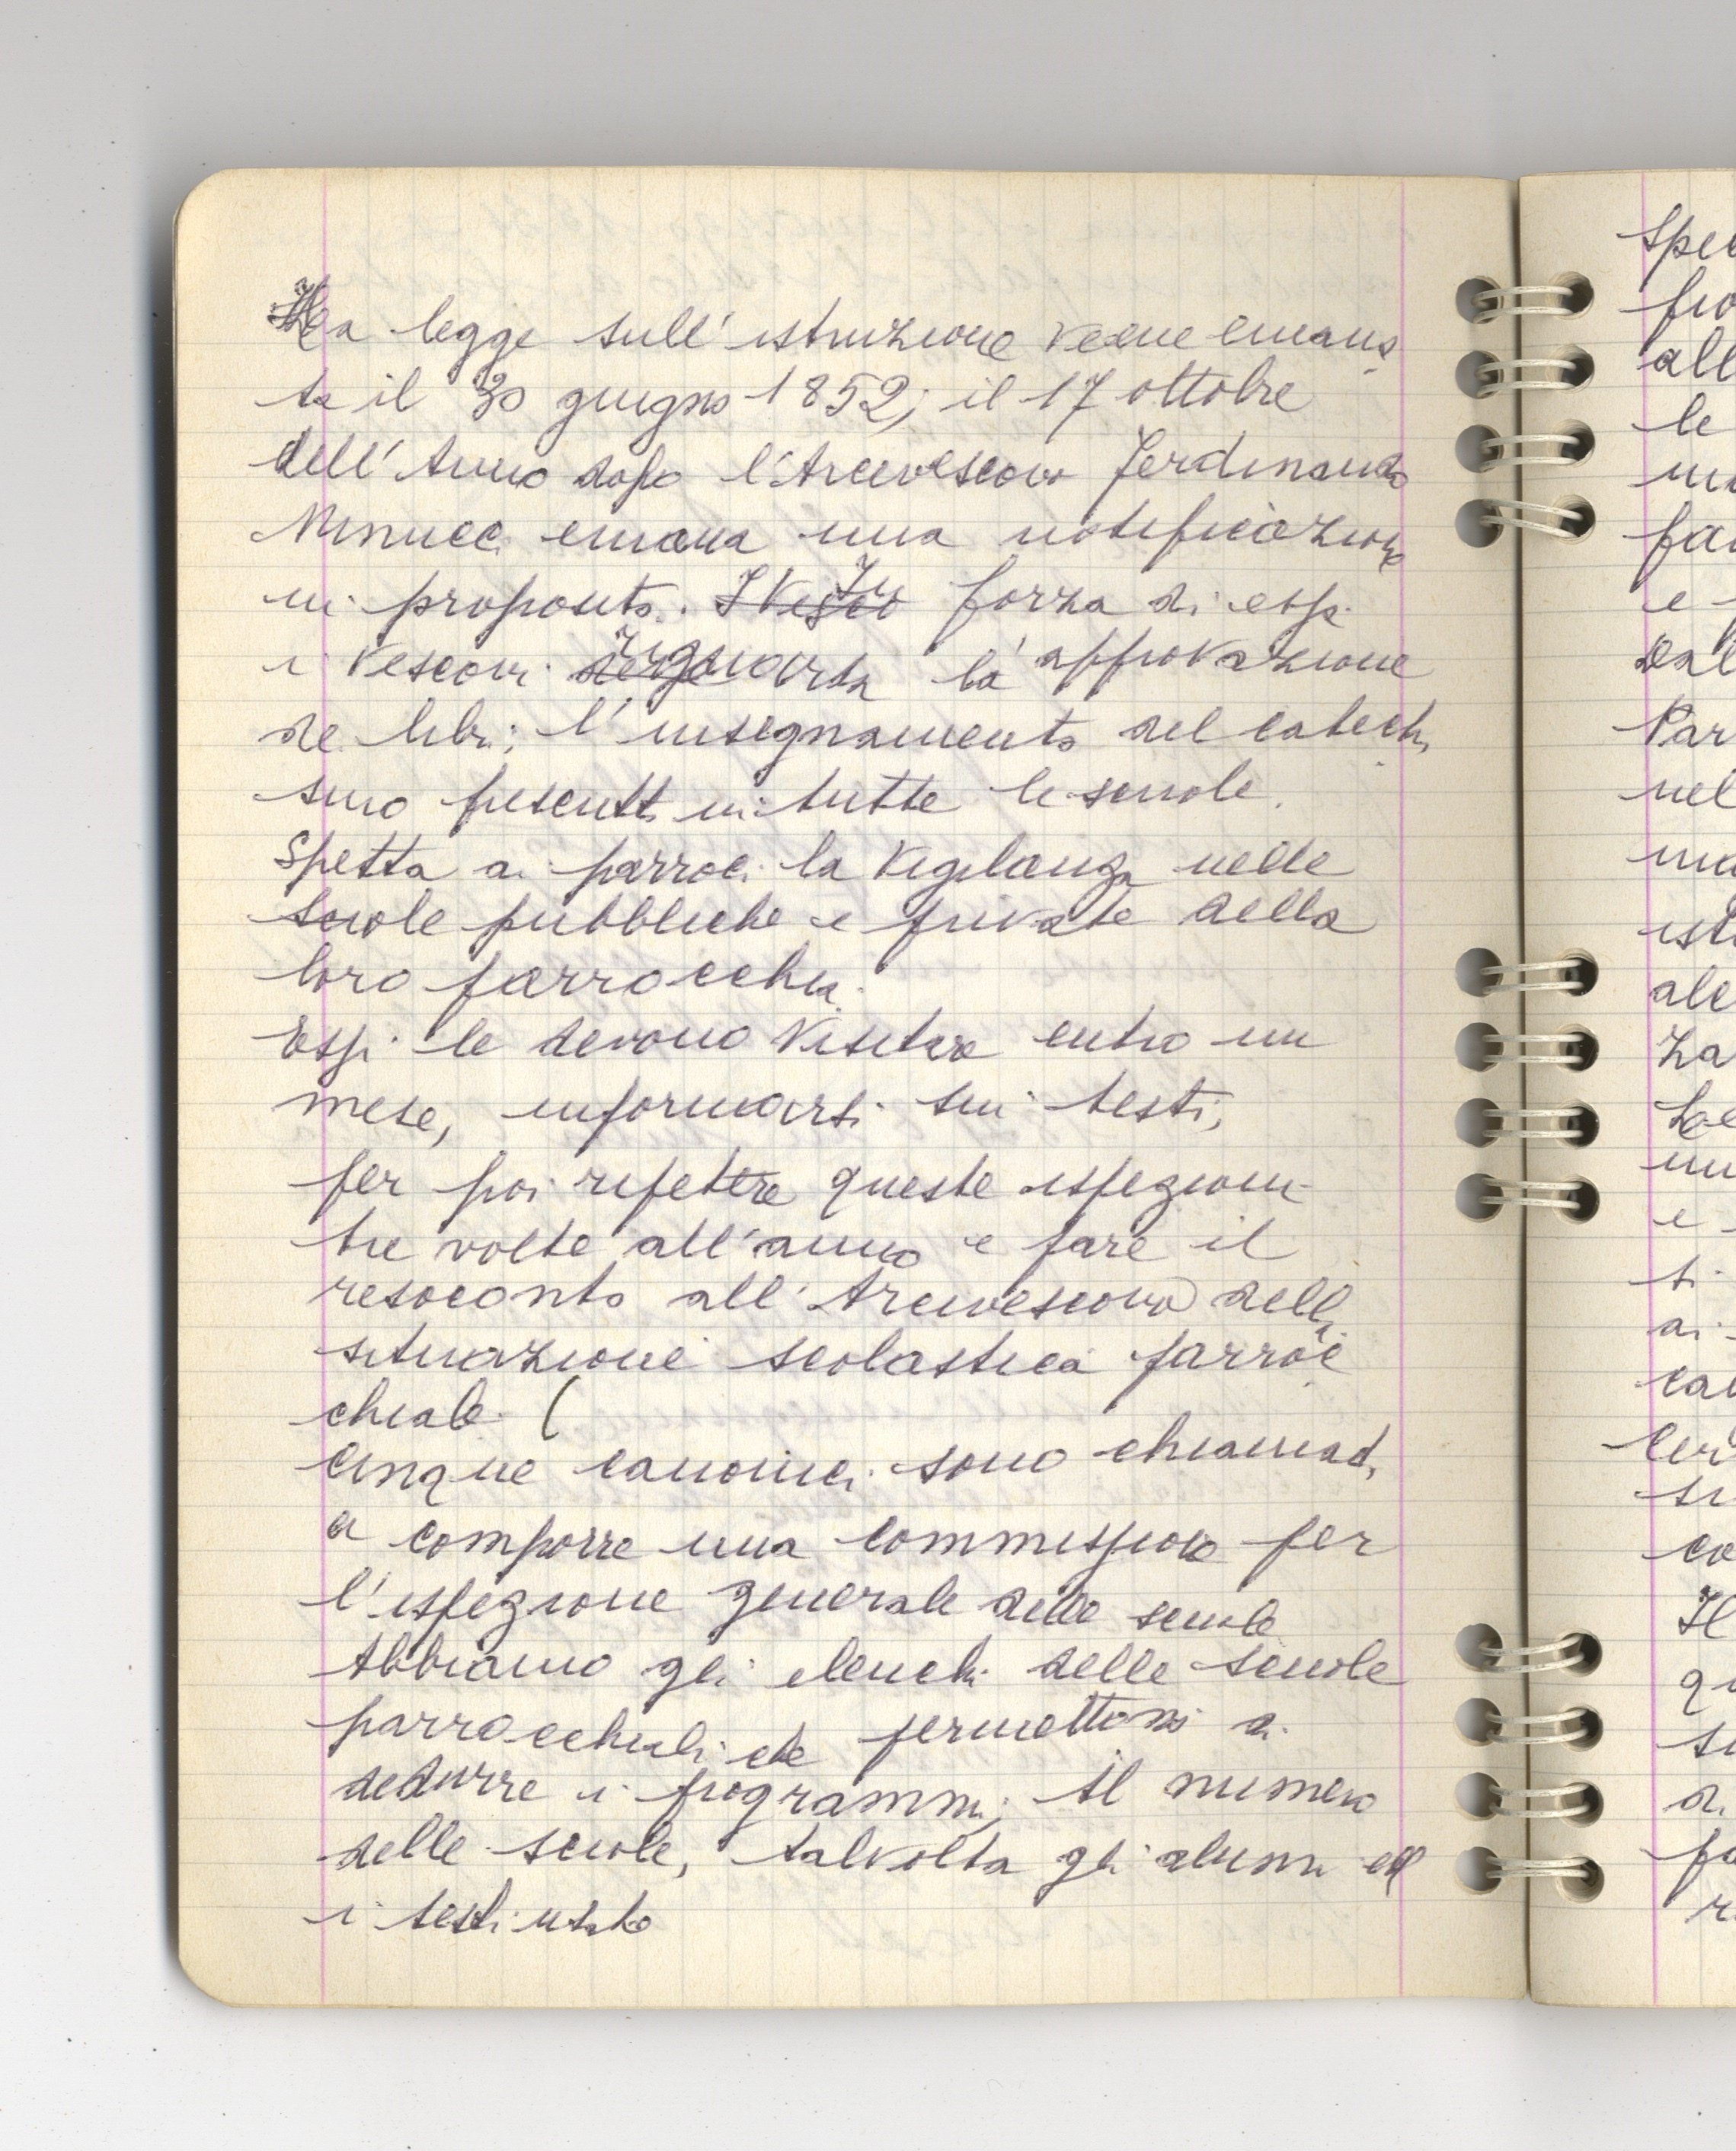 La legge sull'istruzione venne emana
ta il 30 giugno 1852; il 17 ottobre
dell'Anno dopo l'Arcivescovo Ferdinando
Minucci emana una notificazione
in proposito. I Vesco In forza di essa
i Vescovi riguarda la approvazione
dei libri; l'insegnamento del catechi
smo presente in tutte le scuole.
Spetta ai parroci la vigilanza nelle
scuole pubbliche e private della
loro parrocchia.
Essi le devono visitare entro un
mese, informarsi sui testi,
per poi ripetere queste ispezioni
tre volte all'anno e fare il
resoconto all'Arcivescovo della
situazione scolastica parroc
chiale (
Cinque canonici sono chiamati
a comporre una commissione per
l'ispezione generale delle scuole
Abbiamo gli elenchi delle scuole
parrocchiali che permettono di
dedurre i programmi, il numero
delle scuole, talvolta gli alunni ed
i testi usato
Spec
all
le
e
Par
nel
ale
za
e
ti
ai
cal
si
co
Il
qu
di